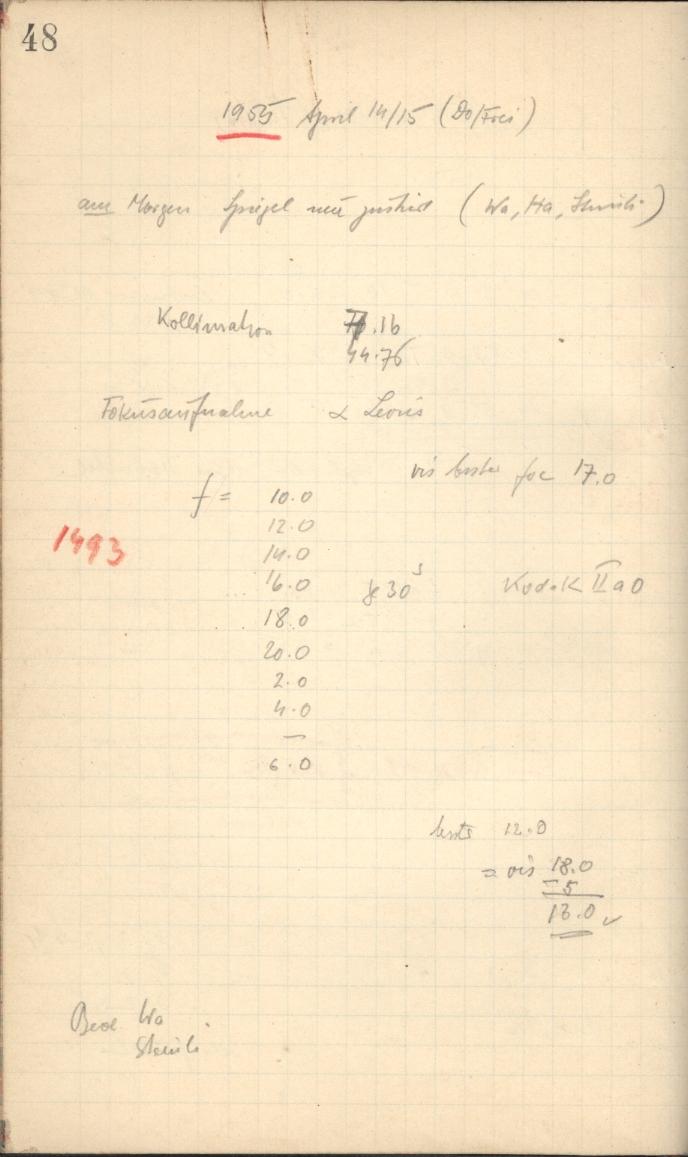 48
1955 April 14/15 (Do/Frei)
am Morgen Spiegel neu justiert (Wa, Ha, Steinli)
Kollimation .16
44.76
Fokusaufnahme α Leonis
vis bester foc 17.0
f = 10.0
12.0
14.0
1493
16.0 je 30s Kodak IIa0
18.0
20.0
2.0
4.0
—
6.0
beste 12.0
= vis 18.0
-5
13.0 ✓
Beob Wa
Steinli